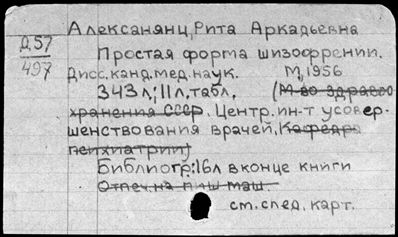 Алексанянц, Рита Аркадьевна
Д57
497
Простая форма шизофрении.
Дисс. канд. мед. наук. М, 1956
343л; 11л, табл. (М-во здраво
хранения СССР. Центр. ин-т усовер-
шенствования врачей, Кафедра
психиатрии)
Библиогр: 16л в конце книги
Отпеч. на пиш маш.
см. след. карт.